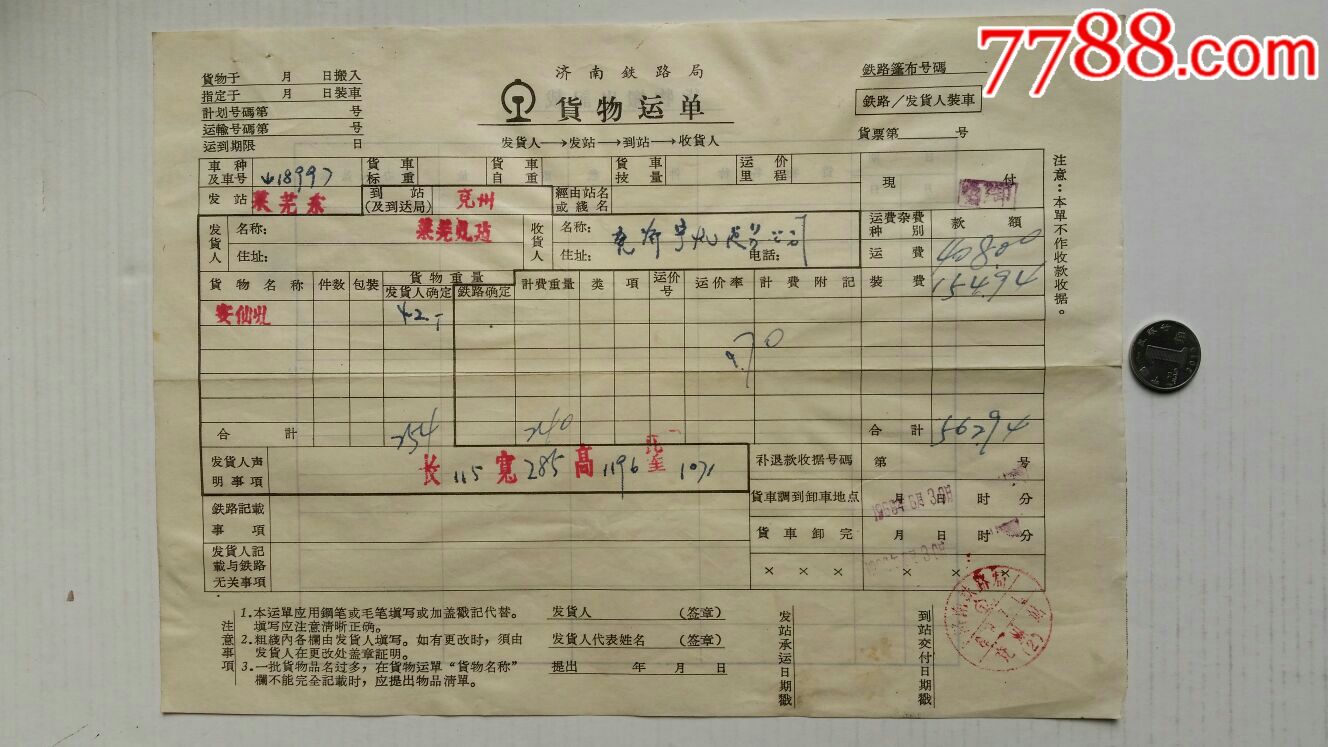 7788.com
貨物于 月 日搬入
指定于 月 日装車
計划号碼第 号
运輸号碼第 号
运到期限 日
济南鉄路局
貨物运单
发貨人→发站→到站→收貨人
鉄路篷布号碼
鉄路/发貨人装車
貨票第 号
車种及車号 18997 貨車标重 貨車自重 貨車按量 运价里程 現付
发站 莱芜东 到站(及到达局) 兗州 經由站名或綫名
发貨人 名称: 收貨人 名称: 运費杂費种別 款額
住址: 住址: 電話: 运費 40800
貨物名称 件数 包装 貨物重量 发貨人确定 鉄路确定 計費重量 类 項 运价号 运价率 計費附記 装費 15494
42T
9.70
合計 254 240 合計 56294
发貨人声明事項 长 115 宽 285 高 1196 至 1071 补退款收据号碼 第 号
鉄路記載事項 貨車調到卸車地点 月 日 时 分
貨車卸完 月 日 时 分
发貨人記載与鉄路无关事項 × × × × × ×
注意:本單不作收款收据。
注意事項
1.本运單应用鋼笔或毛笔填写或加盖戳記代替。
填写应注意清晰正确。
2.粗綫內各欄由发貨人填写。如有更改时,須由
发貨人在更改处盖章証明。
3.一批貨物品名过多,在貨物运單“貨物名称”
欄不能完全記載时,应提出物品清單。
发貨人 (签章)
发貨人代表姓名 (签章)
提出 年 月 日
发站承运日期戳
到站交付日期戳